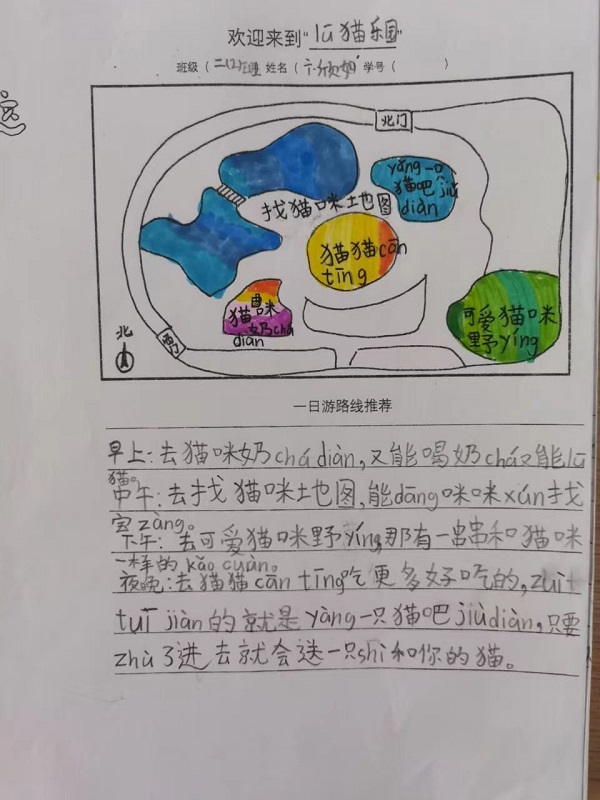 欢迎来到"lū猫乐园"
班级（二(2)班 姓名（ 学号（ ）
北门
yǎng一只
猫吧jiǔ
diàn
找猫咪土也图
猫猫cān
tīng
猫咪
奶chá
diàn
可爱猫咪
野yíng
北
西门
一日游路线推荐
早上:去猫咪奶chá diàn,又能喝奶chá又能lū
猫。
中午:去找猫咪土也图,能dāng咪咪xún找
宝zàng。
下午:去可爱猫咪野yíng,那有一串串和猫咪
一样的kǎo cuàn。
夜晚:去猫猫cān tīng吃更多好吃的,zuì t
tuī jiàn的就是yàng一只猫吧jiùdiàn,只要
zhù了进去就会送一只shì和你的猫。